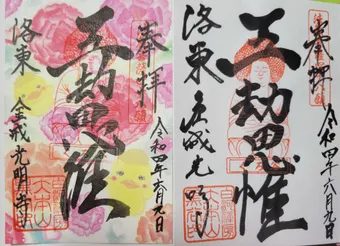 奉拝
令和四年六月九日
五劫思惟
洛東
金戒光明寺
奉拝
令和四年六月九日
五劫思惟
洛東
金戒光明寺